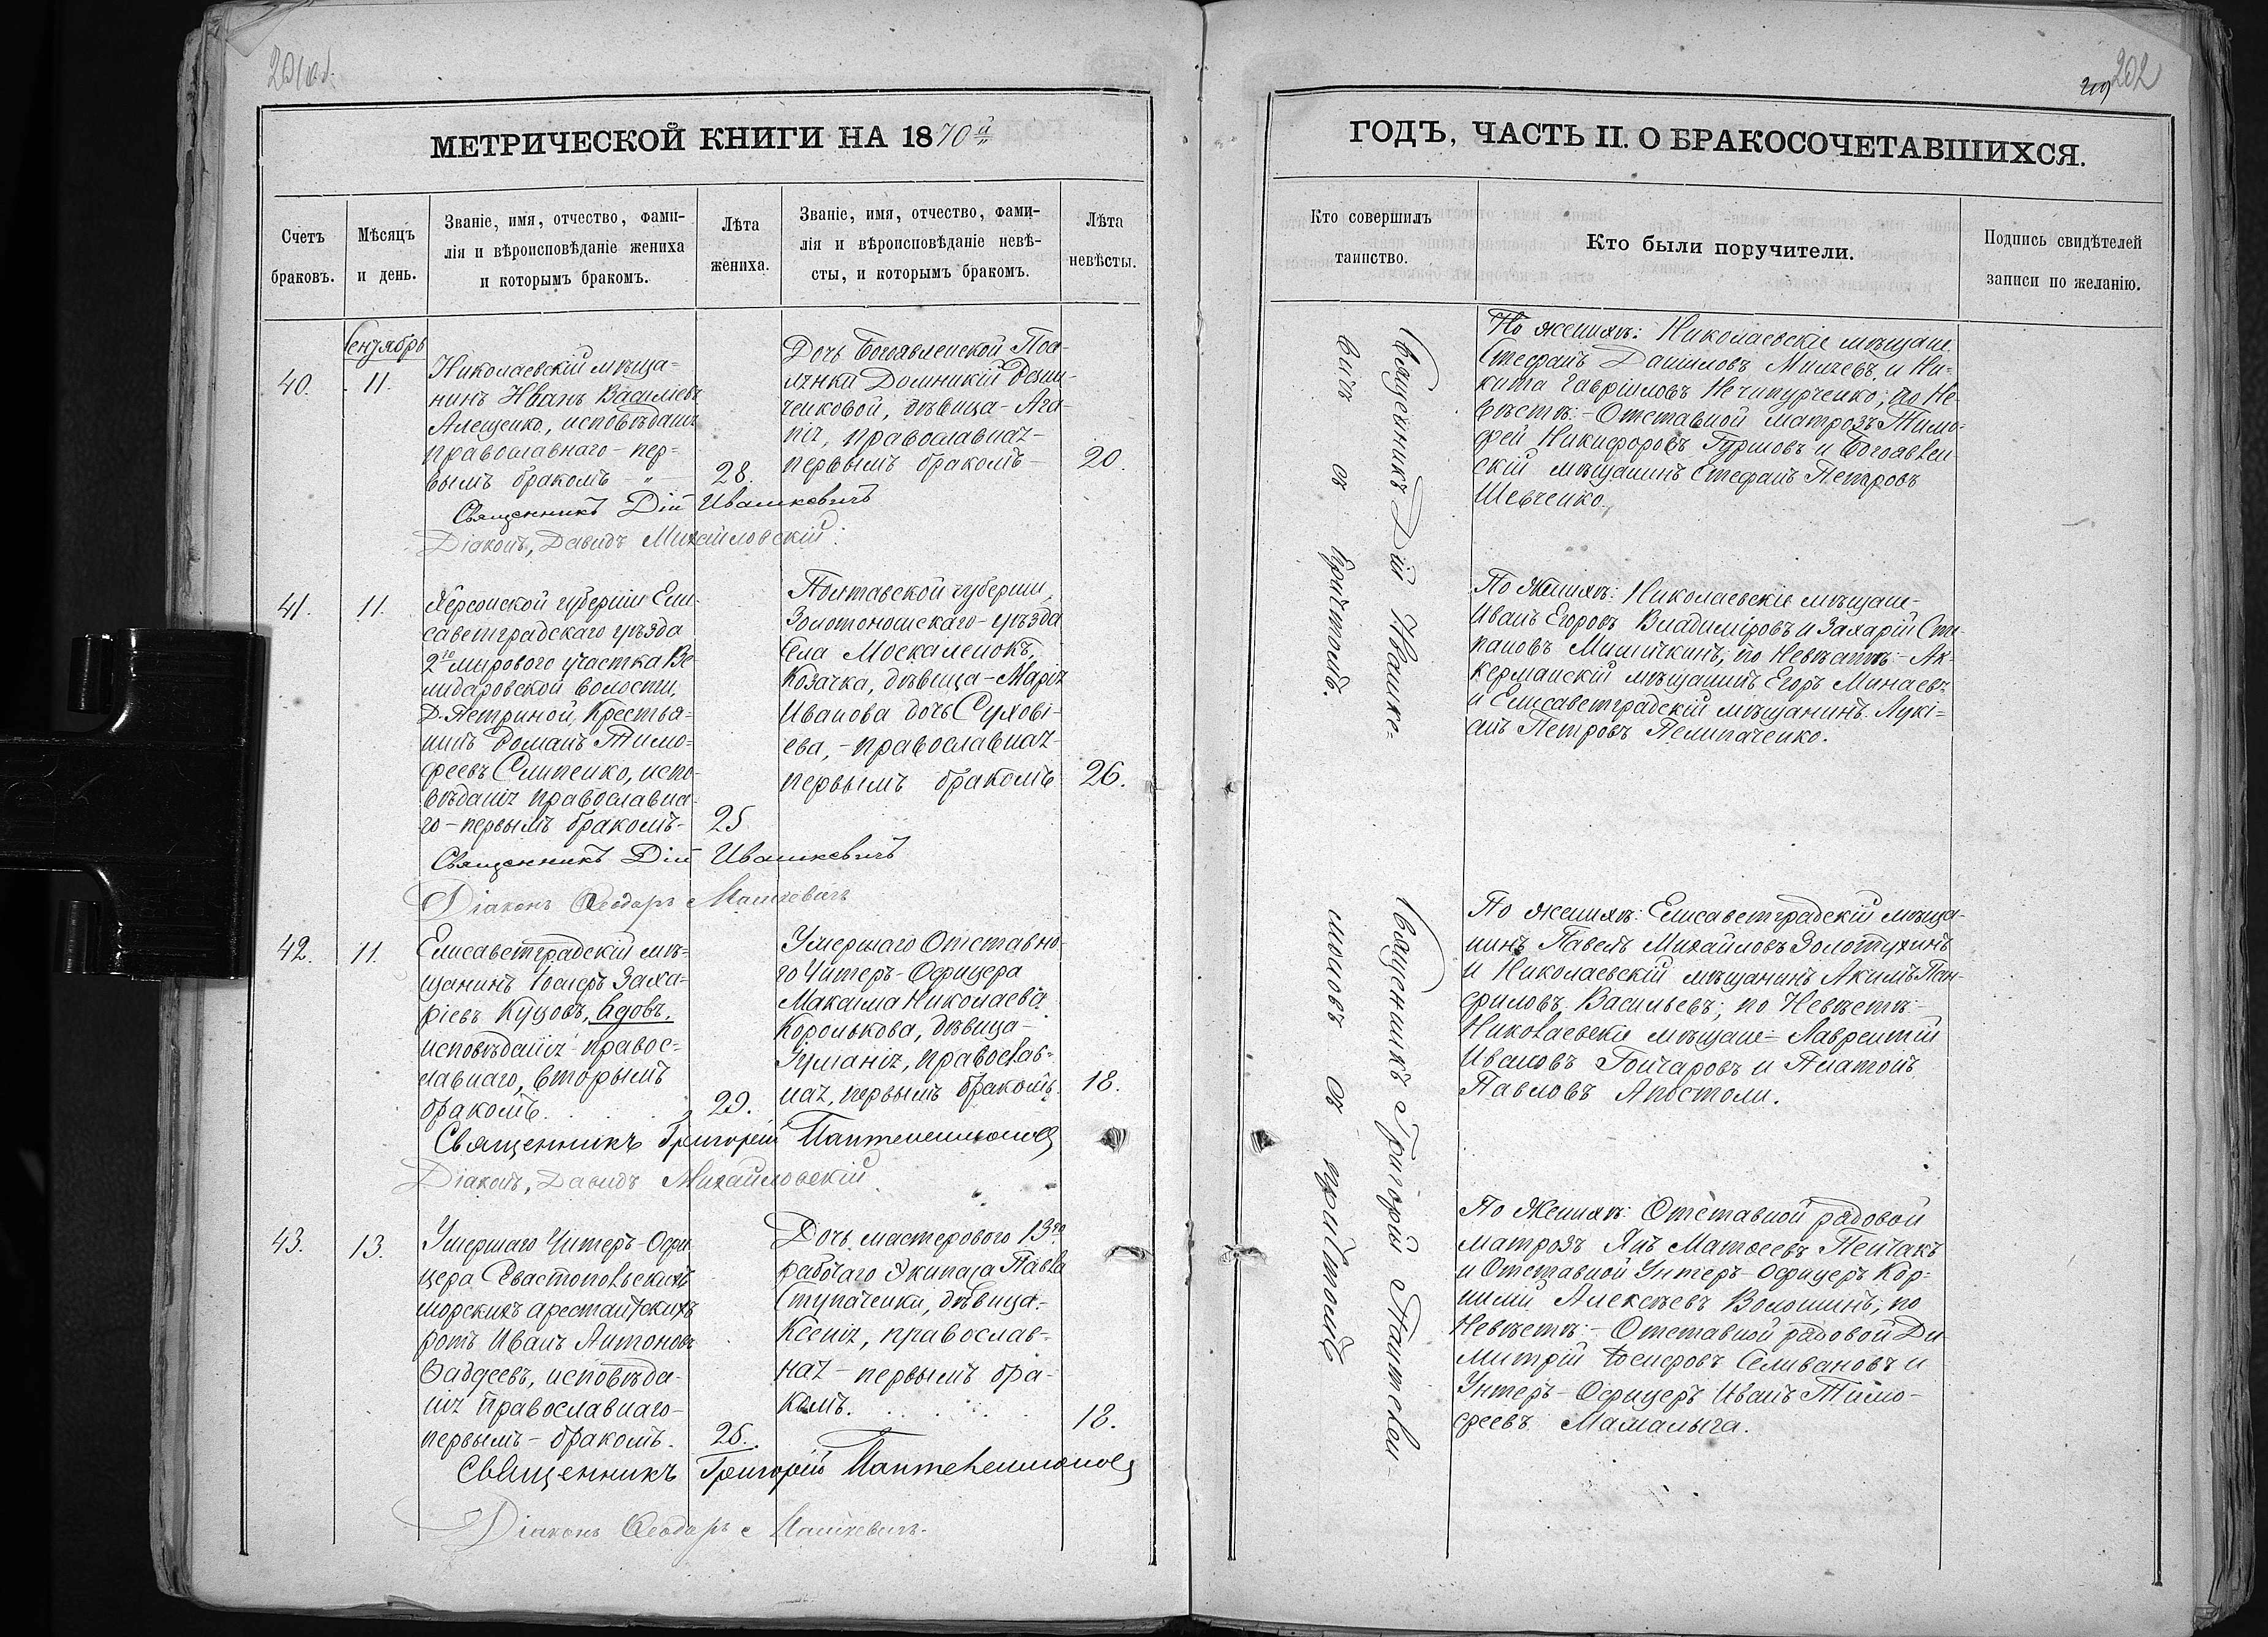 201об.
МЕТРИЧЕСКОЙ КНИГИ НА 1870й
Счетъ браковъ.
Мѣсяцъ и день.
Званіе, имя, отчество, фами-
лія и вѣроисповѣданіе жениха
и которымъ бракомъ.
Лѣта жениха.
Званіе, имя, отчество, фами-
лія и вѣроисповѣданіе невѣ-
сты, и которымъ бракомъ.
Лѣта невѣсты.
Сентябрь
40.
11.
Николаевскій мѣща-
нинъ Иванъ Васильевъ
Алещенко, исповѣданія
православнаго - пер-
вымъ бракомъ - „ -
28.
Дочь Богоявленской Посе-
лянки Домникіи
ченковой, дѣвица - Ага-
пія, православная -
первымъ бракомъ -
20.
Священникъ Дій Ивашкевичъ
Діаконъ, Давидъ Михайловскій.
41.
11.
Херсонской губерніи Ели-
саветградскаго уѣзда
2го мирового участка Ве-
лидаровской волости,
Д. Петриной, Крестья-
нинъ Романъ Тимо-
феевъ Слипенко, испо-
вѣданія православна-
го - первымъ бракомъ -
25.
Полтавской губерніи,
Золотоношскаго - уѣзда
Села Москаленокъ,
Козачка, дѣвица - Марія
Иванова дочь Сухові-
ева, - православная -
первымъ бракомъ
26.
Священникъ Дій Ивашкевичъ
Діаконъ Ѳеодоръ Машкевичъ
42.
11.
Елисаветградскій мѣ-
щанинъ Іосифъ Заха-
ріевъ Куцовъ, вдовъ,
исповѣданія правос-
лавнаго, вторымъ
бракомъ.
29.
Умершаго Отставно-
го Унтеръ-Офицера
Максима Николаева
Королькова, дѣвица -
Іуліанія, православ-
ная, первымъ бракомъ.
18.
Священникъ Григорій Пантелеимоновъ
Діаконъ, Давидъ Михайловскій
43.
13.
Умершаго Унтеръ-Офи-
цера Севастопольскихъ
морскихъ арестантскихъ
ротъ Иванъ Антоновъ
Фаддеевъ, исповѣда-
нія Православнаго -
первымъ - бракомъ.
26.
Дочь мастерового 13го
рабочаго Экипажа Павла
Ступаченки, дѣвица -
Ксенія, православ-
ная - первымъ бра-
комъ.
18.
Священникъ Григорій Пантелеимоновъ
Діаконъ Ѳеодоръ Машкевичъ.
202
ГОДЪ, ЧАСТЬ II. О БРАКОСОЧЕТАВШИХСЯ.
Кто совершилъ таинство.
Кто были поручители.
Подпись свидѣтелей
записи по желанію.
Священникъ Дій Ивашке-
вичъ съ причтомъ.
По женихѣ: Николаевскіе мѣщане
Стефанъ Даниловъ Милаевъ и Ни-
кита Гавріиловъ Нечипурченко; по Не-
вѣстѣ: - Отставной матрозъ Тимо-
фей Никифоровъ Гурщовъ и Богоявлен-
скій мѣщанинъ Стефанъ Петровъ
Шевченко.
По женихѣ: Николаевскіе мѣщане -
Иванъ Егоровъ Владиміровъ и Захарій Сте-
пановъ Мишичкинъ; по Невѣстѣ: - Ак-
керманскій мѣщанинъ Егоръ Минаевъ
и Елисаветградскій мѣщанинъ Лукі-
анъ Петровъ Пелипаченко.
Священникъ Григорій Пантелеи-
моновъ съ причтомъ
По женихѣ: Елисаветградскій мѣща-
нинъ Павелъ Михайловъ Золотухинъ
и Николаевскій мѣщанинъ Акимъ Пан-
филовъ Васильевъ; по Невѣстѣ -
Николаевскіе мѣщане - Лаврентій
Ивановъ Гончаровъ и Платонъ
Павловъ Апостоли.
По Женихѣ: Отставной рядовой
матрозъ Янъ Матѳеевъ Пейчакъ
и Отставной Унтеръ-Офицеръ Кор-
нилій Алексѣевъ Волошинъ; по
Невѣстѣ: - Отставной рядовой Ди-
митрій Іосифовъ Селивановъ и
Унтеръ-Офицеръ Иванъ Тимо-
феевъ Мамалыга.